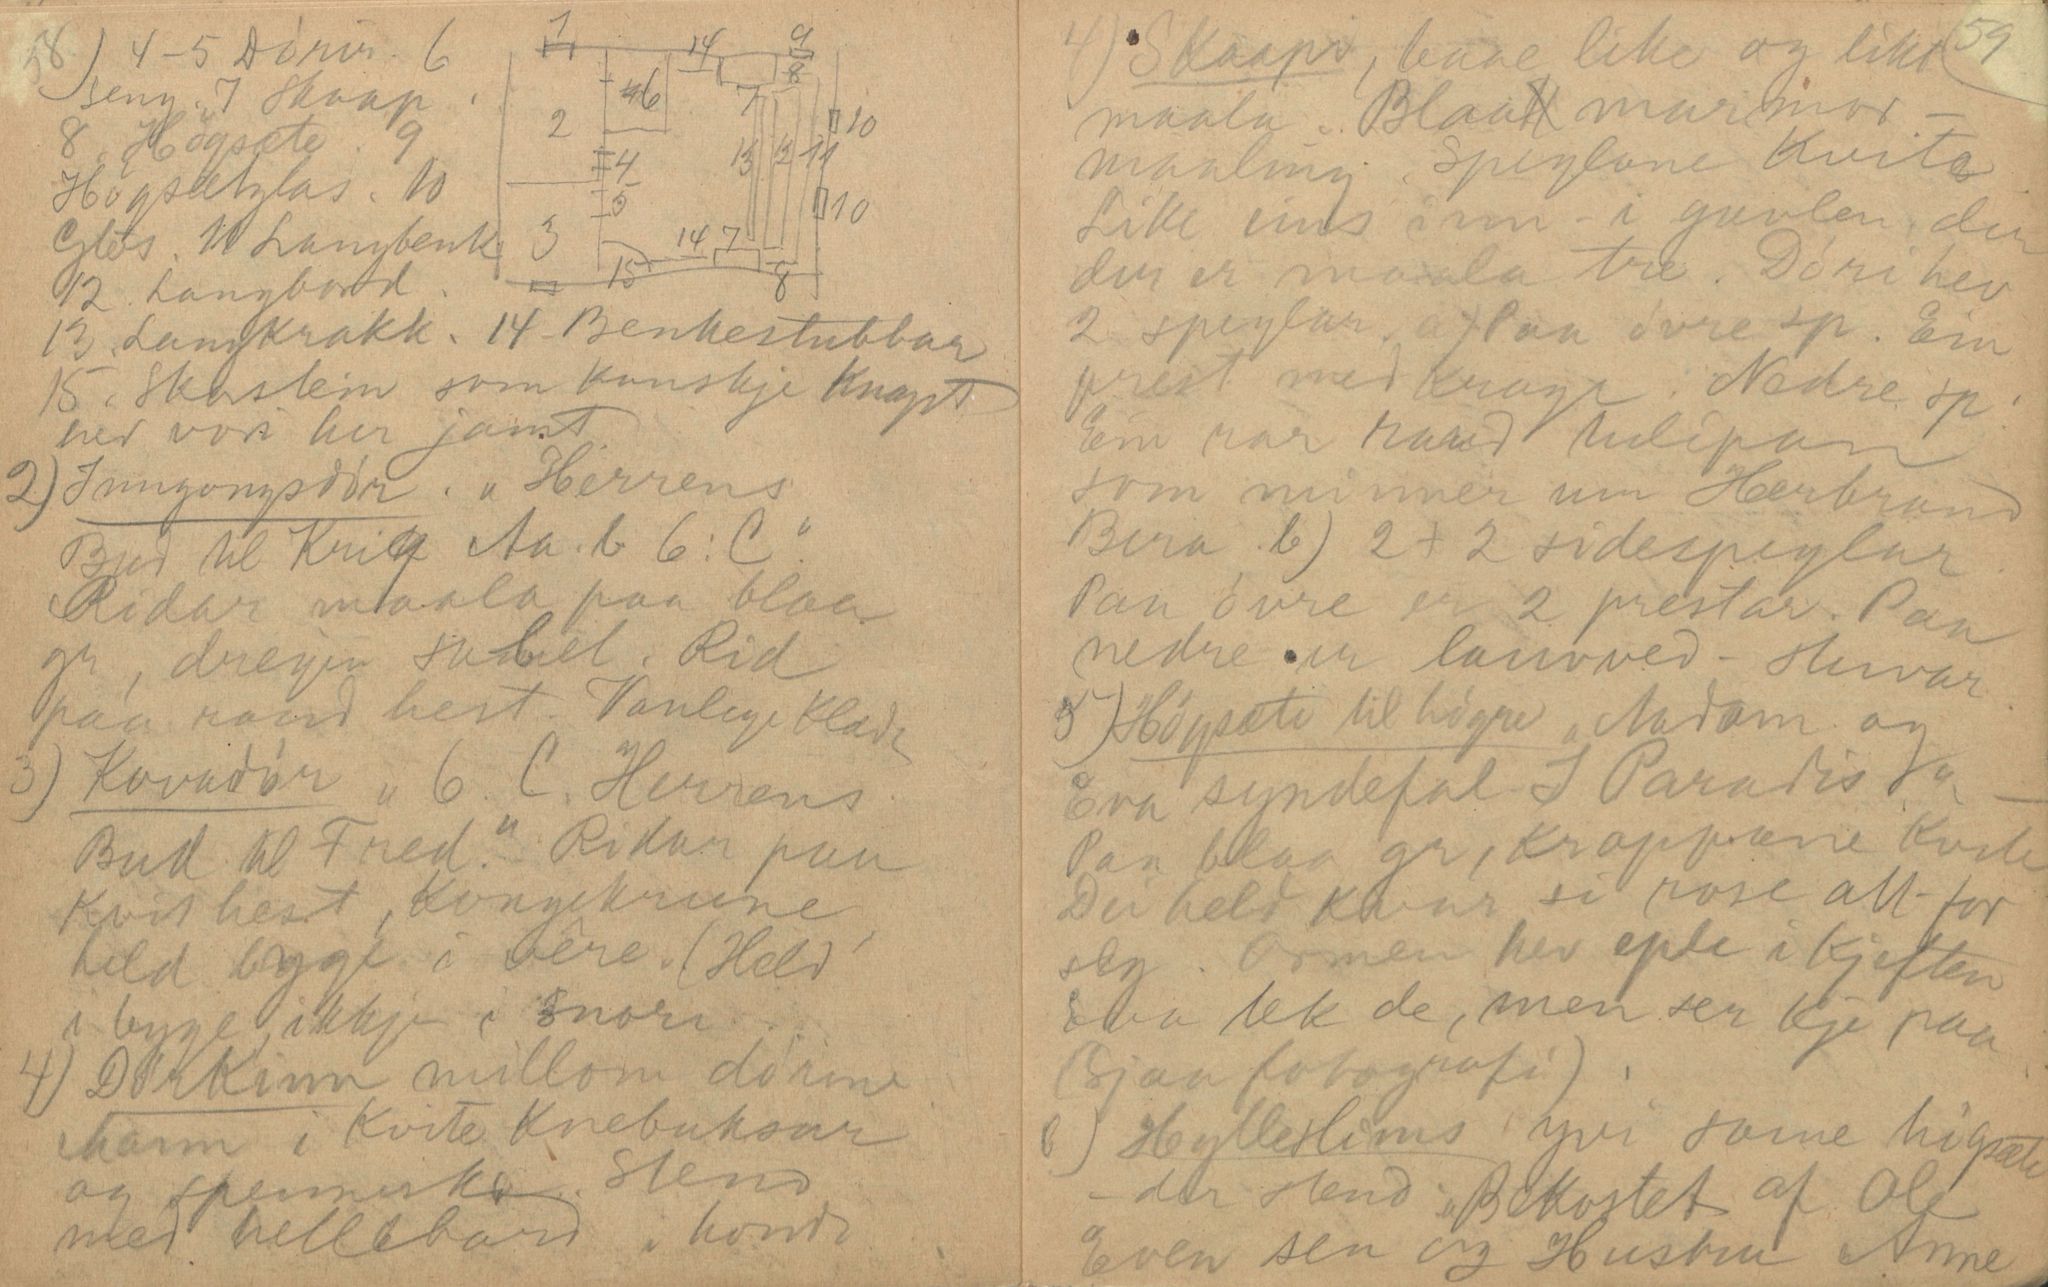 58
) 4-5 Dórir. 6
seng. 7 Skaap.
8. Högsæte. 9
Högsætglas. 10
Glas. 11 Langbenk
12. Langbord.
13. Langkrakk. 14 Benkestubbar
15. Skorstein som kanskje knapt
hev vori her jamt
1
14
9
8
6
7
10
2
4
13
12
11
5
10
3
14
7
15
8
2) Inngongsdór. „Herrens
Bud til Krig Aa. b 6: C“.
Ridar maala paa blaa
gr, dregjen sabel. Rid
paa raud hest. Vanlege klæde
3) Kovadór „6. C. Herrens
Bud til Fred.“ Ridar paa
kvit hest, Kongekrune,
held bygi i vere. (Held
i byge, ikkje i snori
4) Dórkinn millom dórine
Mann i kvite knebuksur
og spennesko. Stend
med hellebard i hondi
59
4) Skaapi, baae like og likt
maala. Blaa marmor-
maaling. Speglane kvite
Like eins inn-i gavlen, der
der er maala tre. Dóri hev
2 speglar. a) Paa óvre sp. Ein
prest med krage. Nedre sp.
Ein rar raud tulipan
som minner um Herbrand
Bera. b) 2+2 sidespeglar
Paa óvre er 2 prestar. Paa
nedre er lauvved-skuvar
5) Högsæte til högre „Aadam og
Eva syndefal I Paradis
Paa blaa gr, kroppane kvite
Dei held kvar si rose att-for
seg. Ormen hev eple i kjeften
Eva tek de, men ser kje paa
(Sjaa fotografi).
6) Hylleslims yvi same högsæte
- der stend „Bekostet af Ole
Even sen og Hustru Anne